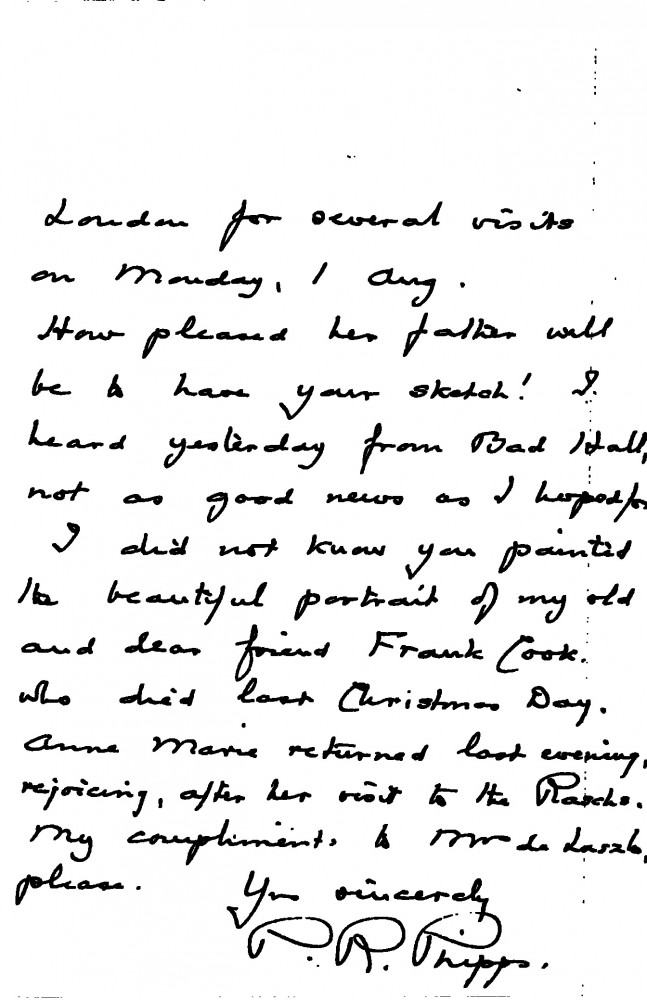 London for several visits
on Monday, 1 Aug.
How pleased her father will
be to have your sketch! I
heard yesterday from Bad Hall,
not as good news as I hoped for
I did not know you painted
the beautiful portrait of my old
and dear friend Frank Cook.
who died last Christmas Day.
Anne Marie returned last evening,
rejoicing, after her visit to the
My compliments to Mrs de Laszlo,
please. Yrs sincerely
P. R. Phipps.